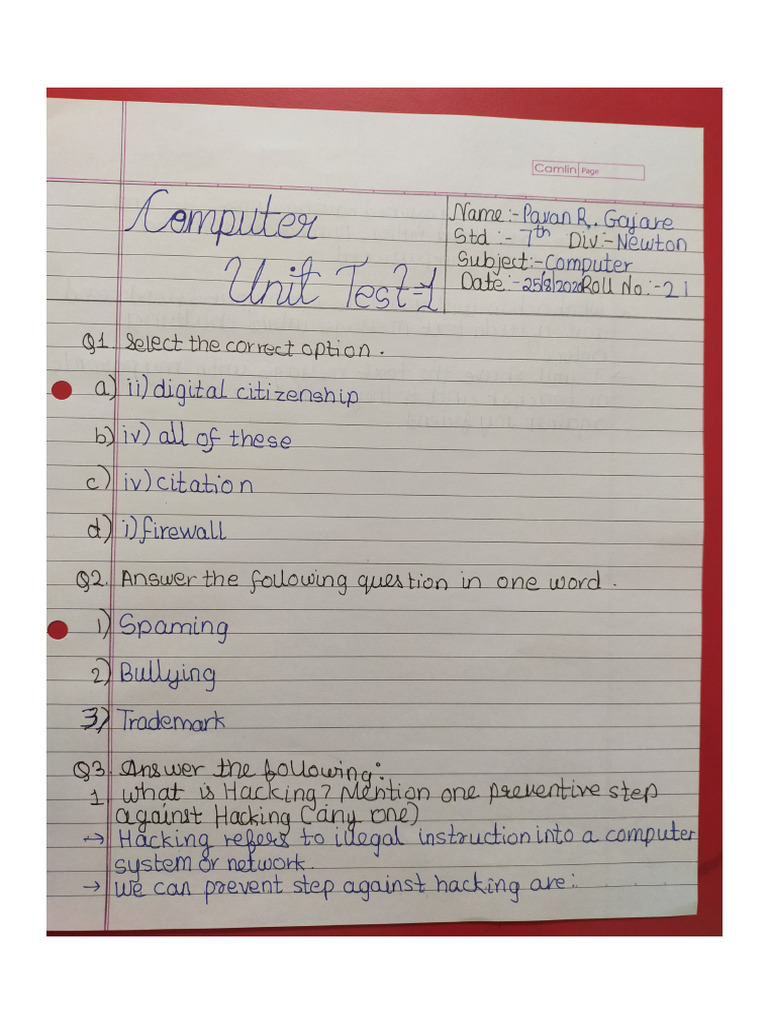 Camlin Page
Computer
Unit Test-1
Name:- Pavan R. Gajare
Std :- 7th Div:- Newton
Subject:- Computer
Date:- 25/8/2020 Roll No:- 21
Q1. Select the correct option.
a) ii) digital citizenship
b) iv) all of these
c) iv) citation
d) i) firewall
Q2. Answer the following question in one word.
1) Spaming
2) Bullying
3) Trademark
Q3. Answer the following:
1 What is Hacking? Mention one preventive step
against Hacking (any one)
→ Hacking refers to illegal instruction into a computer
system or network.
→ We can prevent step against hacking are: